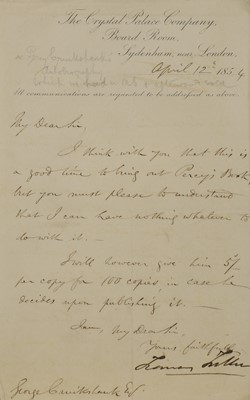 The Crystal Palace Company,
Board Room,
Sydenham, near London.
April 12th 1854
All communications are requested to be addressed as above.
My Dear Sir,
I think with you that this is
a good time to bring out Percy's Book
but you must please to understand
that I can have nothing whatever to
do with it. —
I will however give him 5/-
per copy for 100 copies, in case he
decides upon publishing it. —
I am, My dear Sir.
Yours faithfully
George Cruikshank Esq